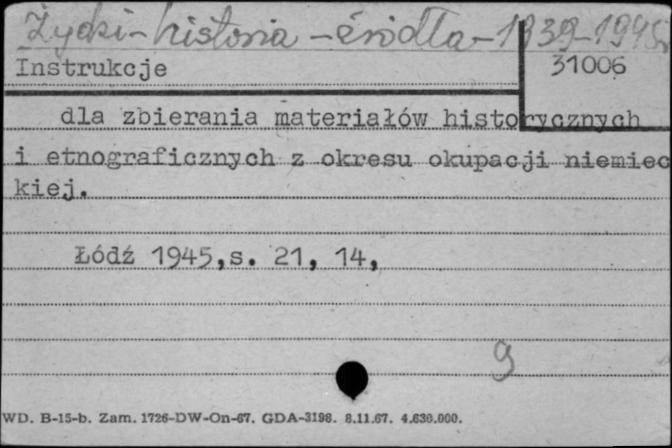 Żydzi - historia - źródła - 1939-1945
Instrukcje
31006
dla zbierania materiałów historycznych
i etnograficznych z okresu okupacji niemiec
kiej.
Łódź 1945,s. 21, 14,
9
WD. B-15-b. Zam. 1726-DW-On-67. GDA-3198. 8.11.67. 4.630.000.